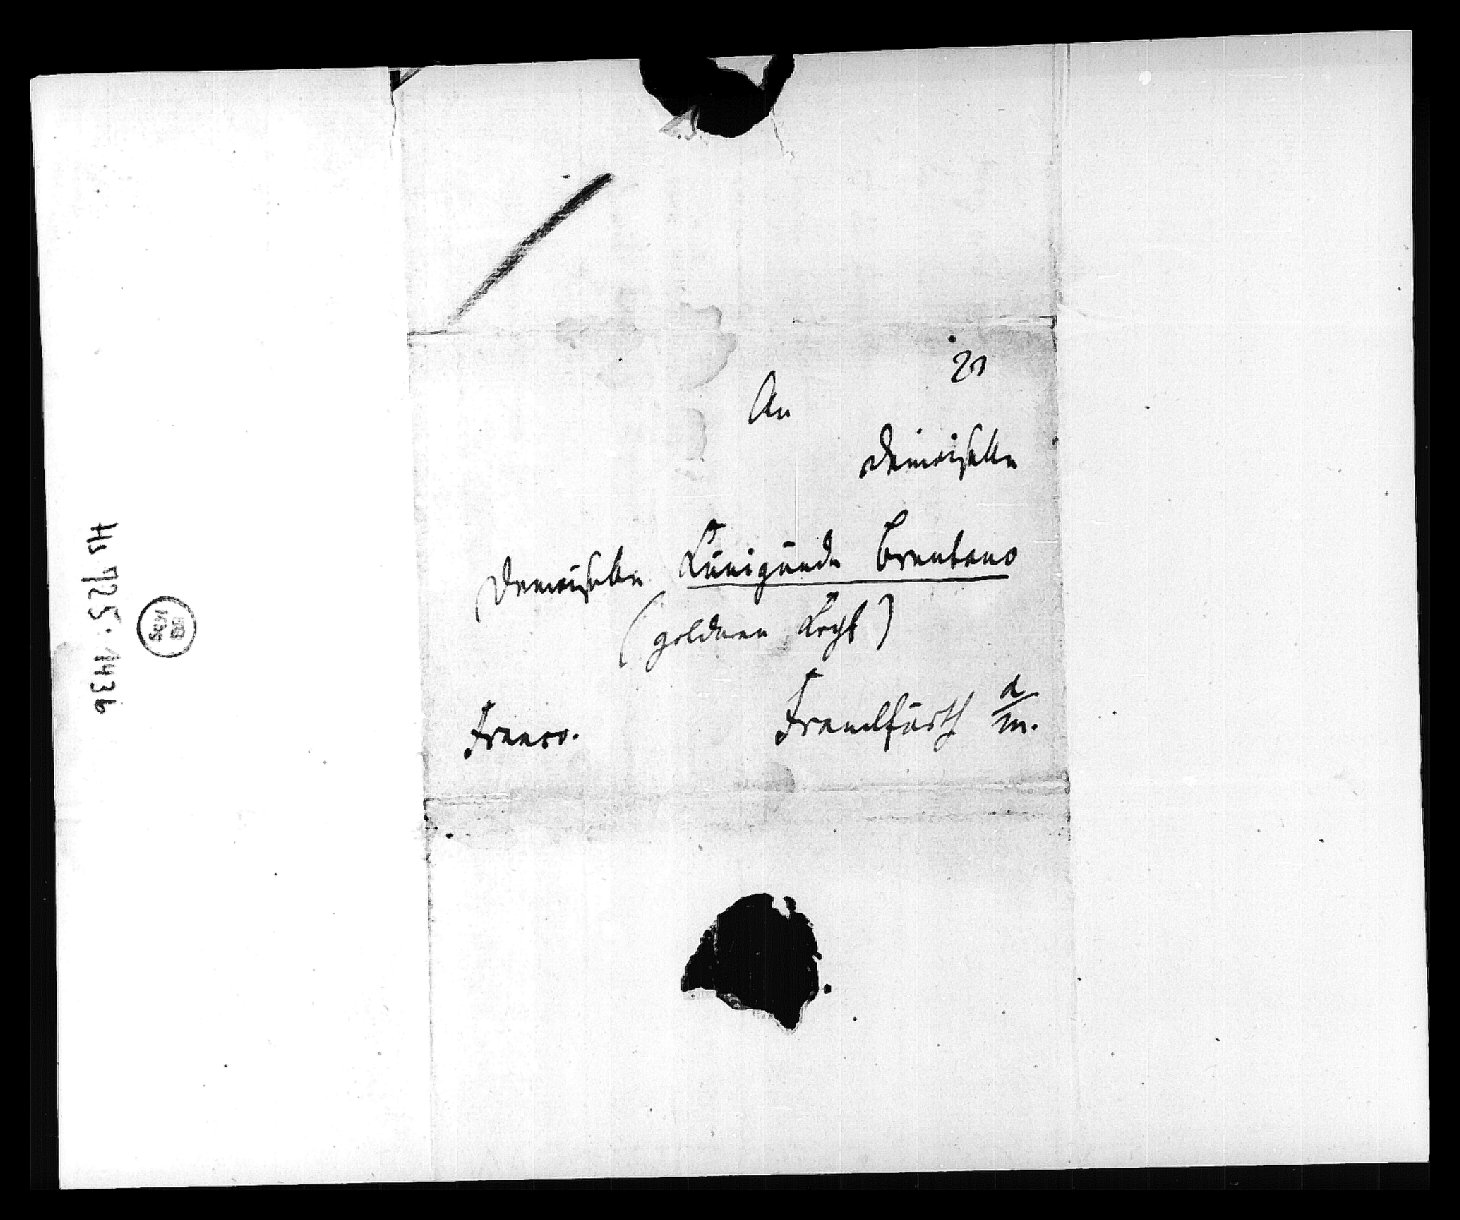 20
An
Demoiselle
Demoiselle Kunigunde Brentano
(goldnen Kopf)
Franco. Franckfurth a/m.
Hs 725. 1436